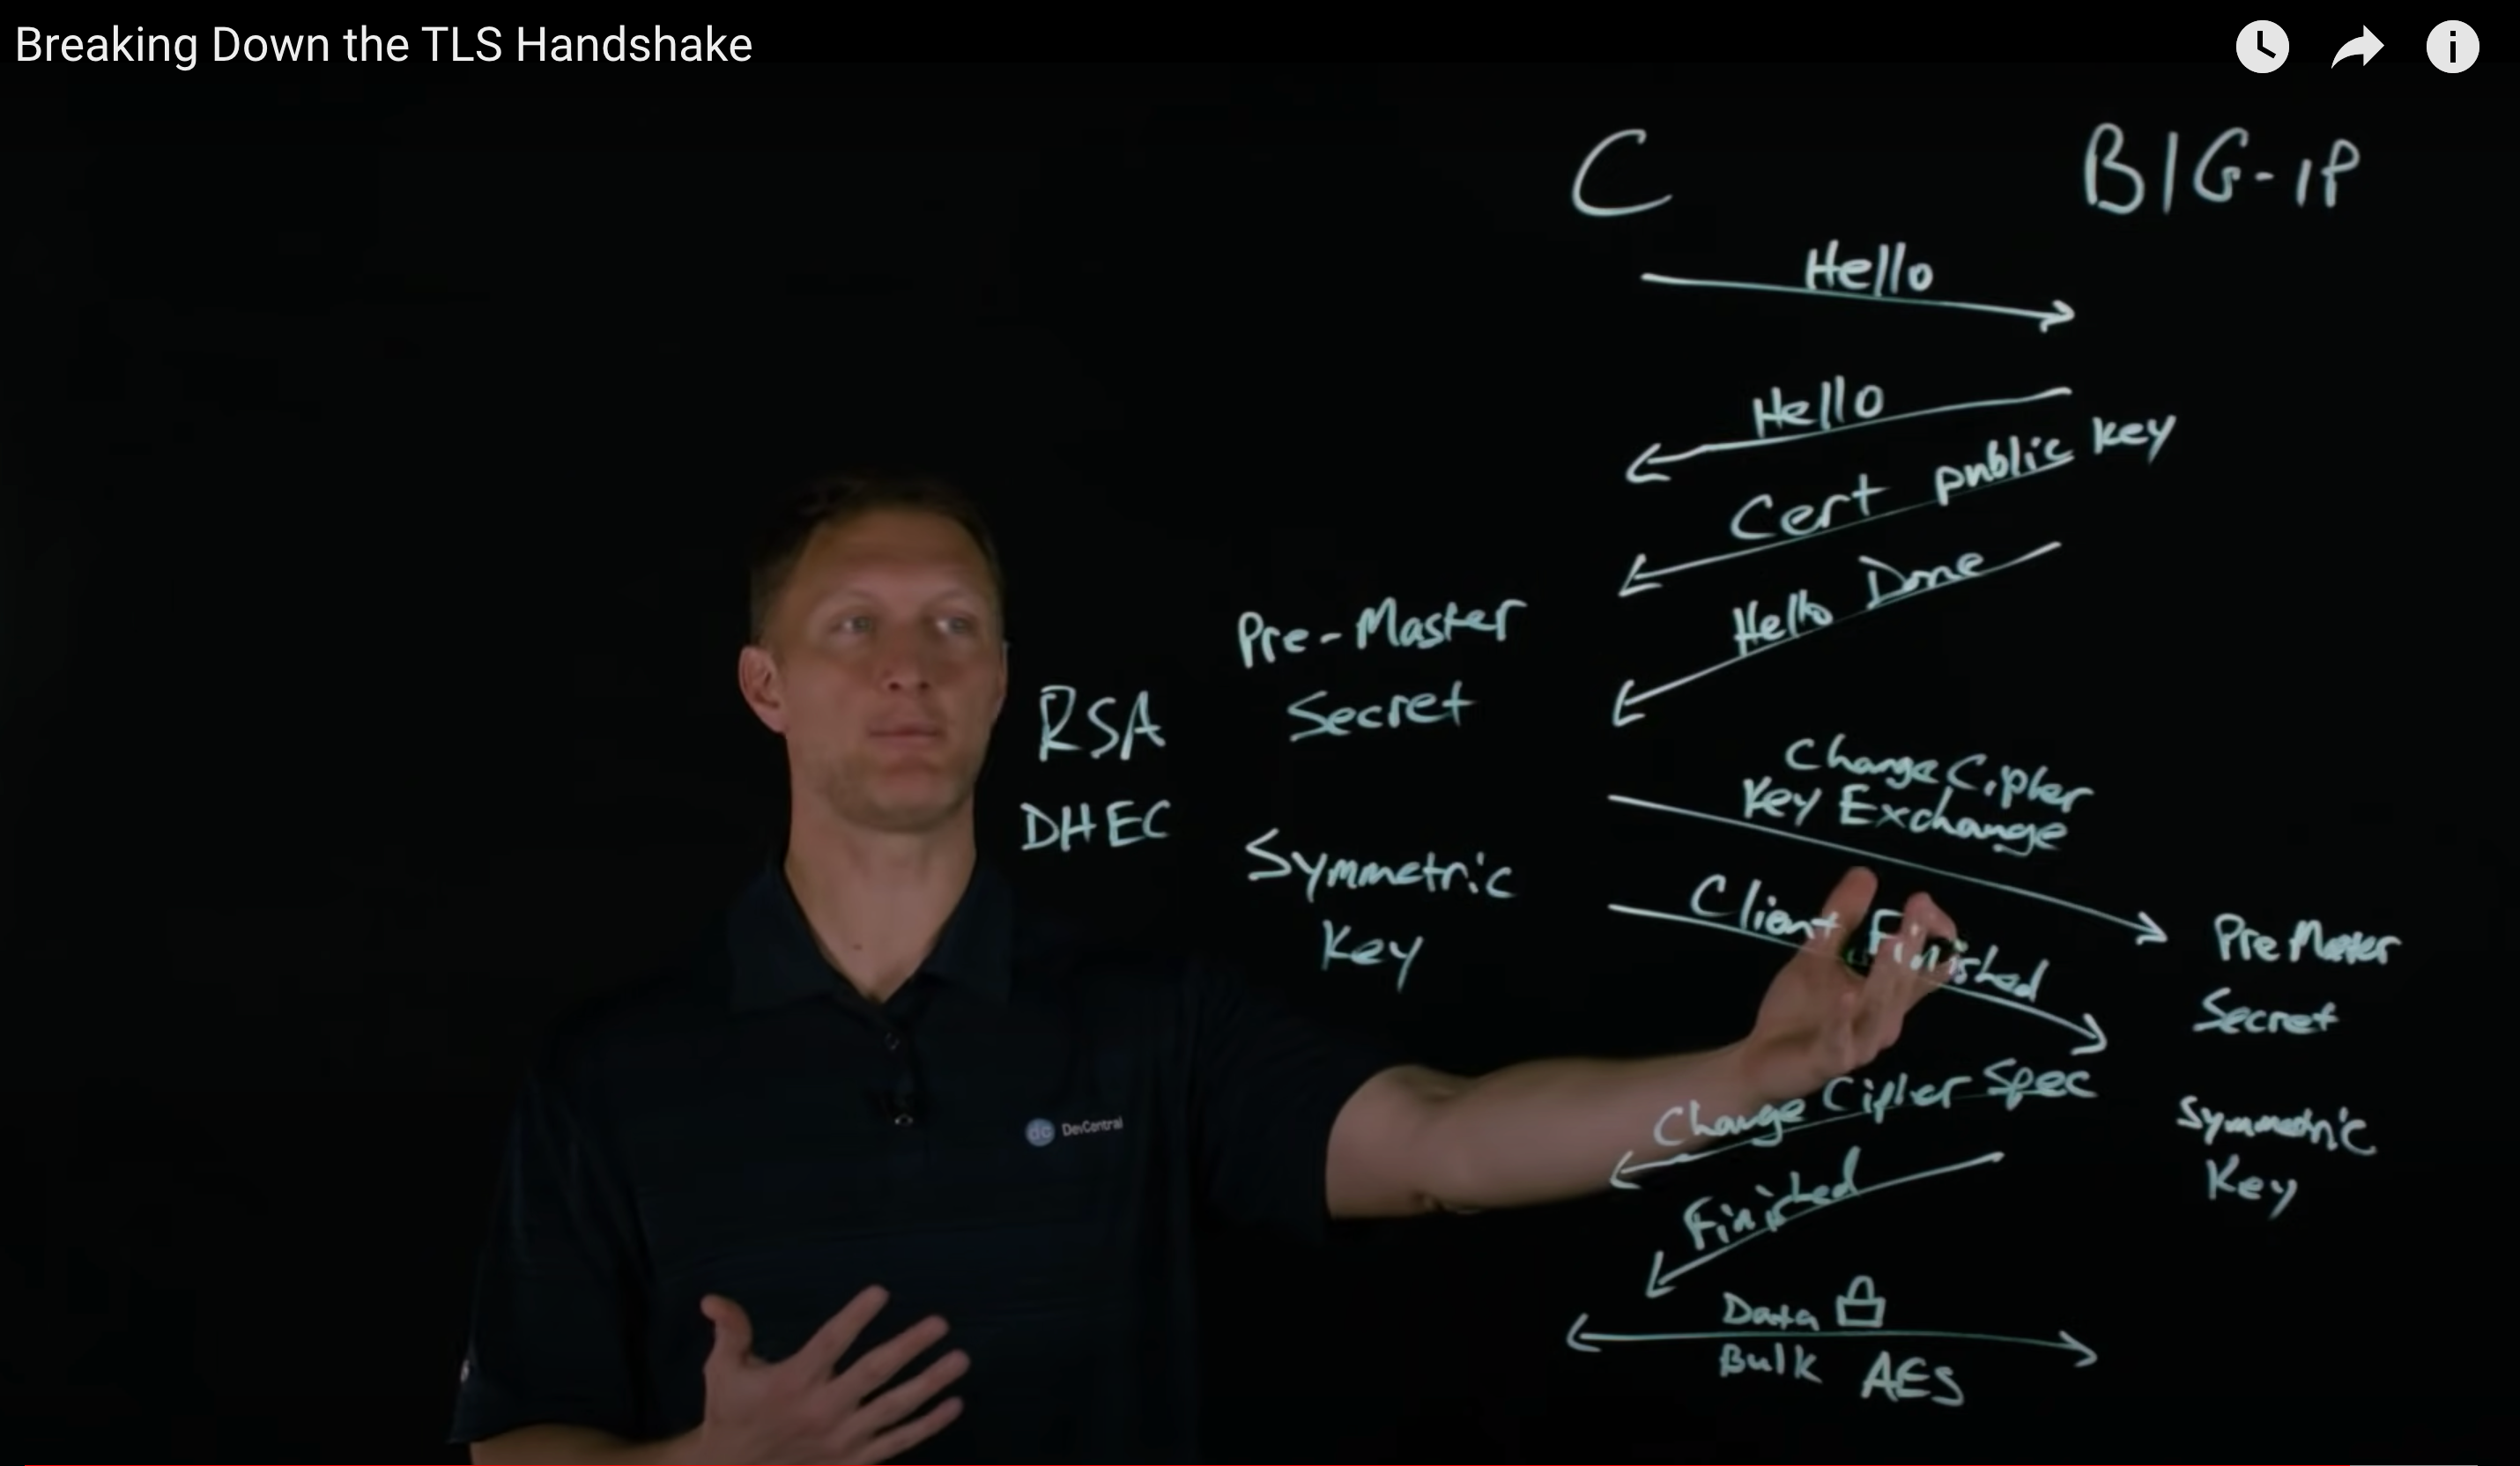 Breaking Down the TLS Handshake
C
BIG-IP
Hello
Hello
Cert public key
Hello Done
Pre-Master
Secret
RSA
DHEC
Symmetric
Key
Change Cipher
Key Exchange
Client Finished
Pre Master
Secret
Change Cipher Spec
Symmetric
Key
Finished
Data
Bulk AES
dc DevCentral